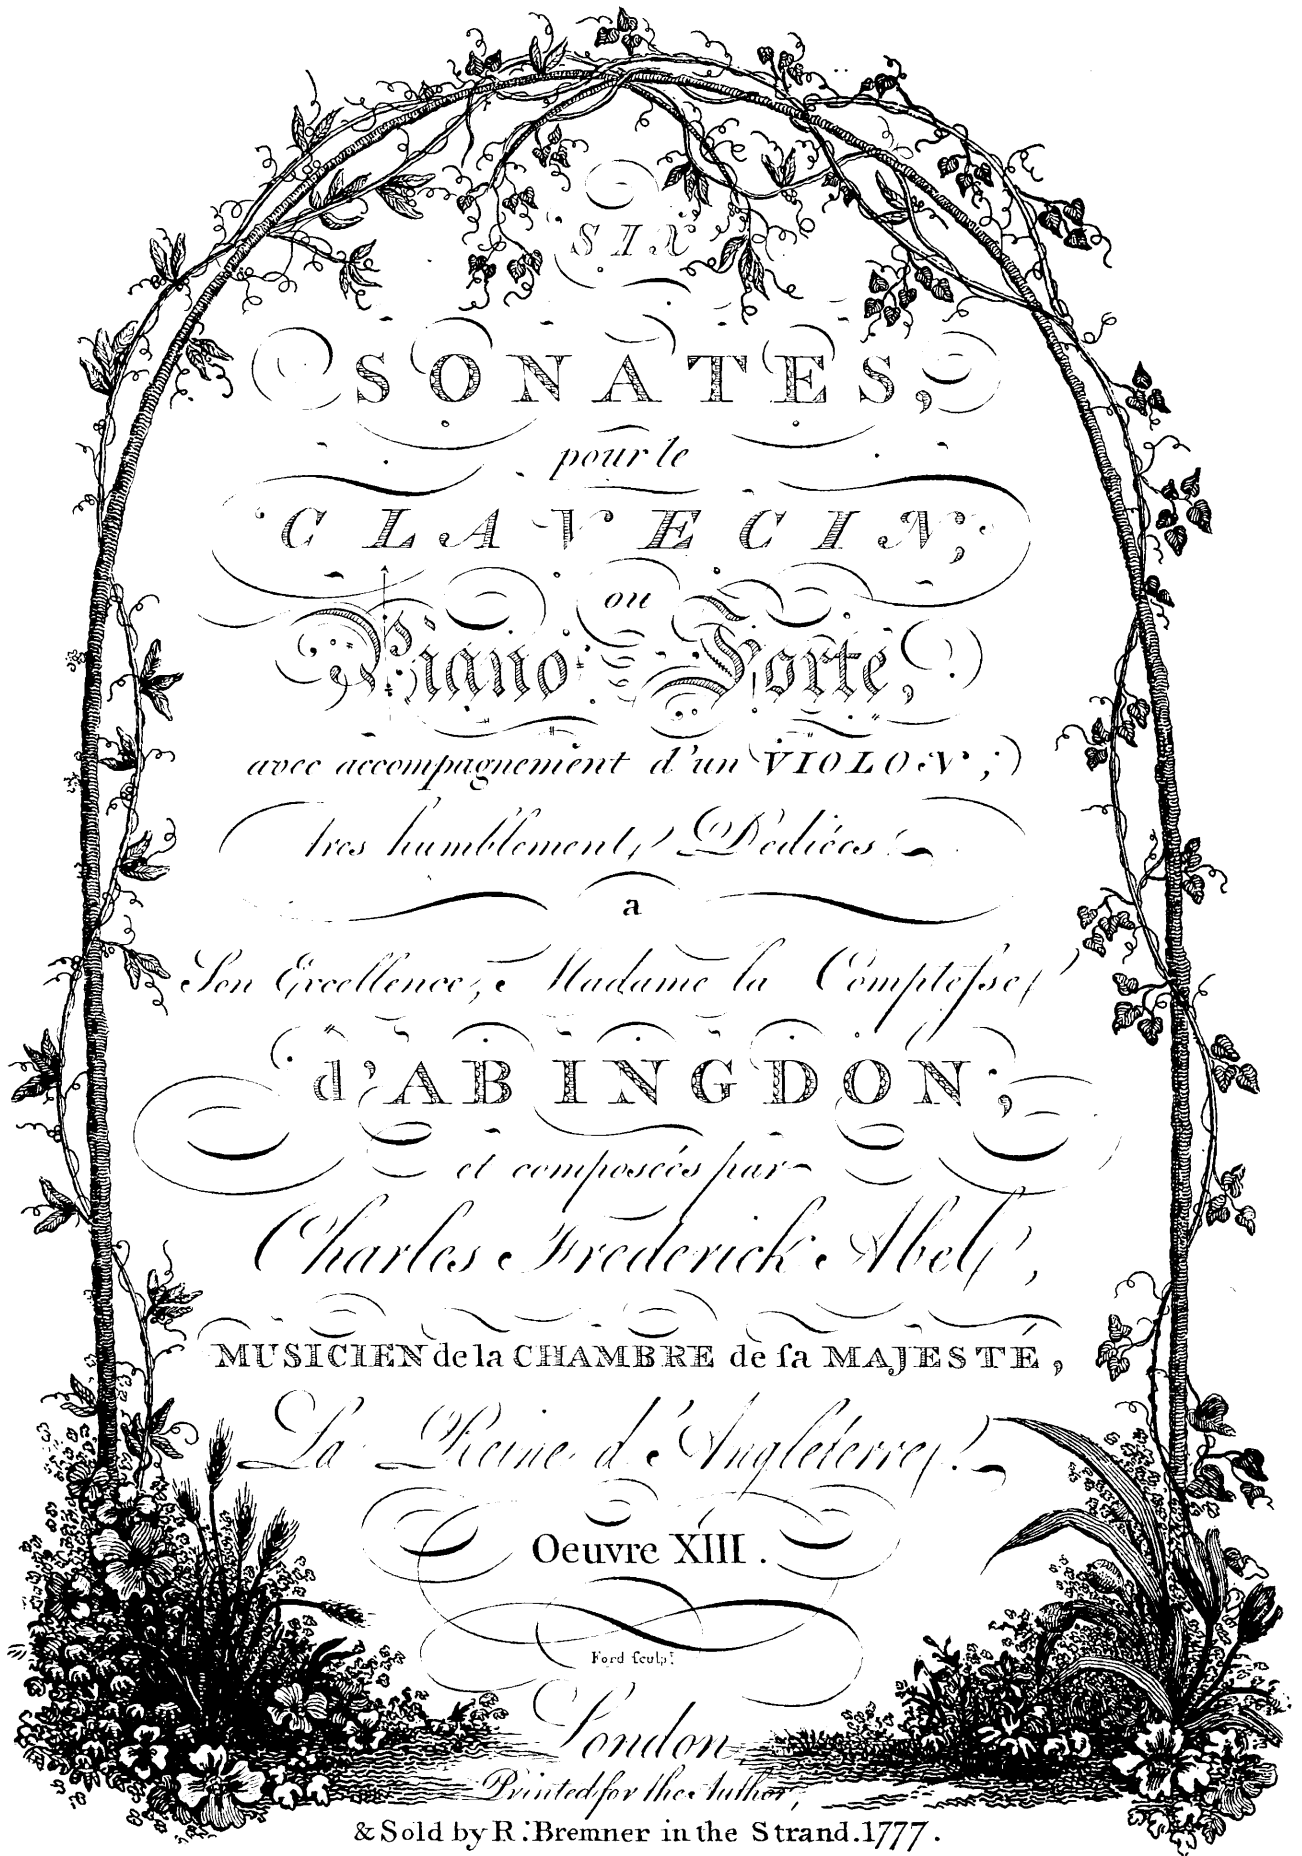 SIX
SONATES,
pour le
CLAVECIN,
ou
Piano Forte,
avec accompagnement d'un VIOLON;
tres humblement Dediées
a
Son Excellence, Madame la Comptesse
d'ABINGDON;
et composées par
Charles Frederick Abel,
MUSICIEN de la CHAMBRE de ſa MAJESTÉ,
La Reine d'Angleterre.
Oeuvre XIII.
Ford ſculpt
London
Printed for the Author,
& Sold by R. Bremner in the Strand. 1777.